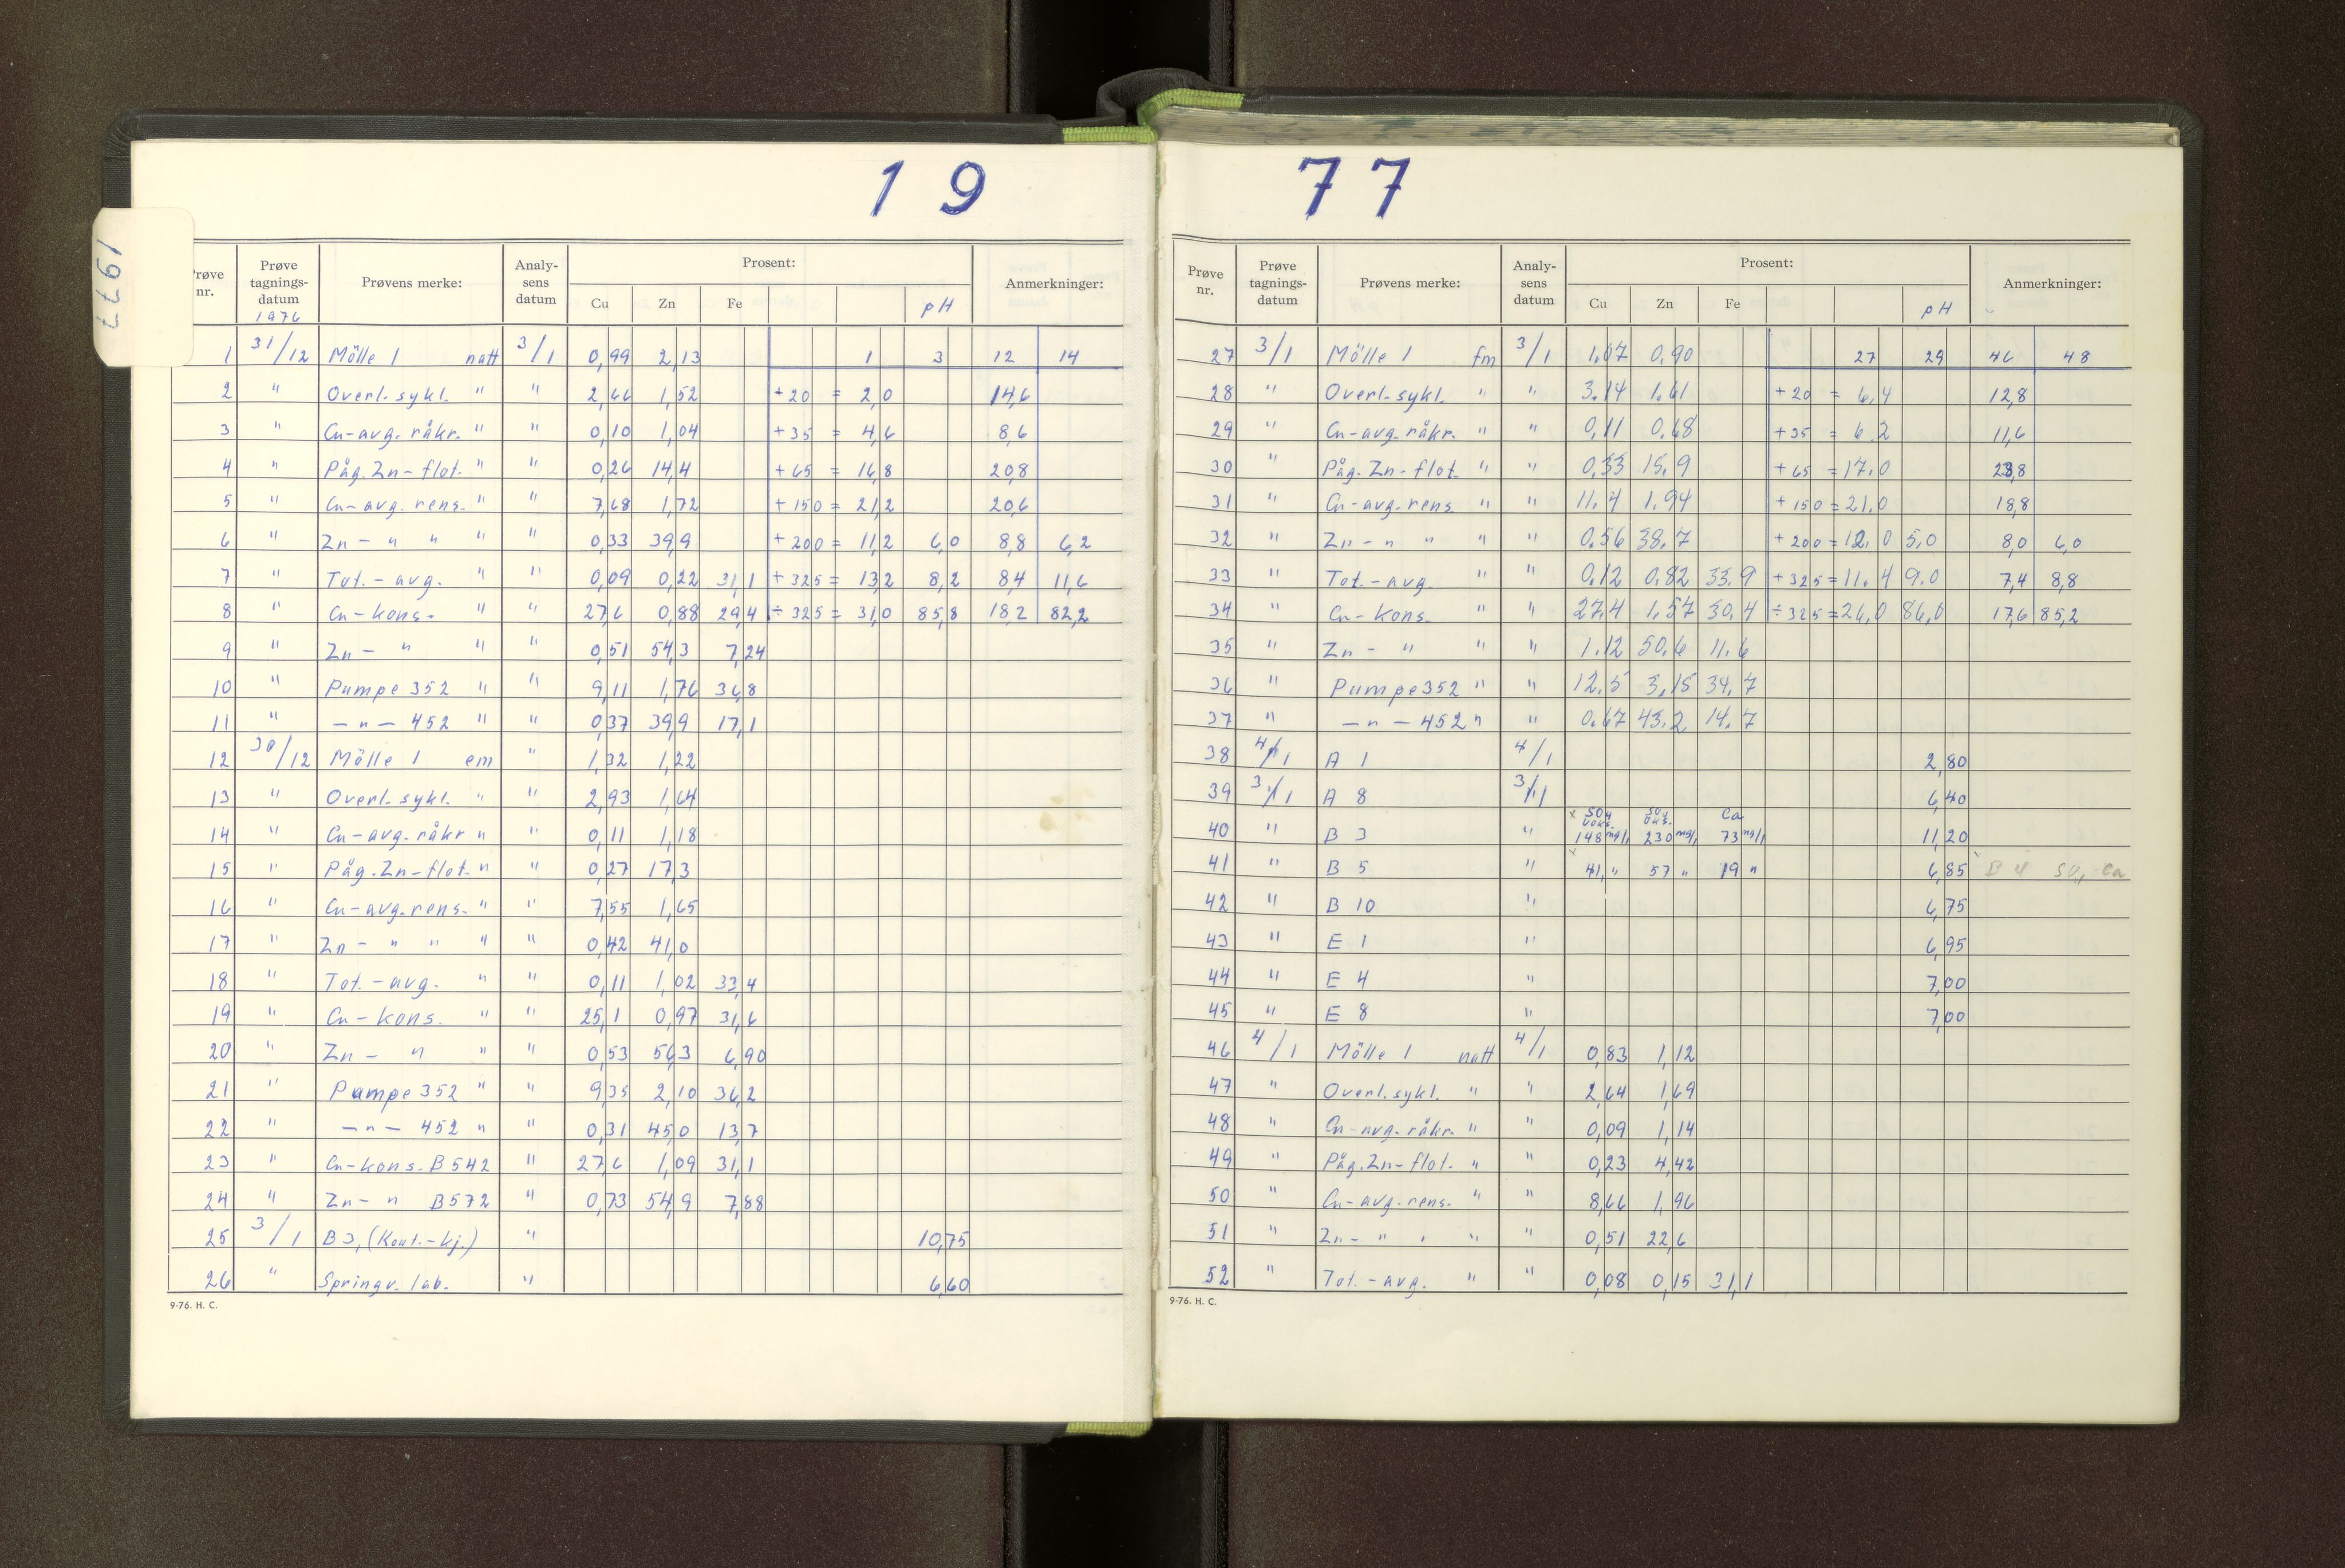 19 77
1977
Prøve nr. Prøve tagnings- datum 1976 Prøvens merke: Analy- sens datum Prosent: Cu Zn Fe pH Anmerkninger:
1 31/12 Mölle 1 natt 3/1 0,99 2,13 1 3 12 14
2 " Overl. sykl. " " 2,66 1,52 +20 = 2,0 14,6
3 " Cu-avg. råkr. " " 0,10 1,04 +35 = 4,6 8,6
4 " Påg. Zn-flot. " " 0,26 14,4 +65 = 16,8 20,8
5 " Cu-avg. rens. " " 7,68 1,72 +150 = 21,2 20,6
6 " Zn- " " " " 0,33 39,9 +200 = 11,2 6,0 8,8 6,2
7 " Tot.-avg. " " 0,09 0,22 31,1 +325 = 13,2 8,2 8,4 11,6
8 " Cu-kons. " " 27,6 0,88 29,4 ÷325 = 31,0 85,8 18,2 82,2
9 " Zn- " " " 0,51 54,3 7,24
10 " Pumpe 352 " " 9,11 1,76 36,8
11 " -"- 452 " " 0,37 39,9 17,1
12 30/12 Mölle 1 em " 1,32 1,22
13 " Overl. sykl. " " 2,93 1,64
14 " Cu-avg. råkr " " 0,11 1,18
15 " Påg. Zn-flot. " " 0,27 17,3
16 " Cu-avg. rens. " " 7,55 1,65
17 " Zn- " " " " 0,42 41,0
18 " Tot.-avg. " " 0,11 1,02 33,4
19 " Cu-kons. " " 25,1 0,97 31,6
20 " Zn- " " " 0,53 56,3 6,90
21 " Pumpe 352 " " 9,35 2,10 36,2
22 " -"- 452 " " 0,31 45,0 13,7
23 " Cu-kons. B542 " 27,6 1,09 31,1
24 " Zn- " B572 " 0,73 54,9 7,88
25 3/1 B3, (Kont.-kj.) " 10,75
26 " Springv. lab. " 6,60
9-76. H. C.
Prøve nr. Prøve tagnings- datum Prøvens merke: Analy- sens datum Prosent: Cu Zn Fe pH Anmerkninger:
27 3/1 Mölle 1 fm 3/1 1,07 0,90 27 29 46 48
28 " Overl. sykl. " " 3.14 1.61 +20 = 6,4 12,8
29 " Cu-avg. råkr. " " 0,11 0,68 +35 = 6.2 11,6
30 " Påg. Zn-flot. " " 0,33 15,9 +65 = 17.0 23,8
31 " Cu-avg. rens. " " 11,4 1.94 +150 = 21.0 18,8
32 " Zn- " " " " 0.56 38.7 +200 = 12.0 5,0 8,0 6,0
33 " Tot.-avg. " " 0.12 0.82 33.9 +325 = 11.4 9.0 7,4 8,8
34 " Cu-kons. " " 27,4 1,57 30,4 ÷325 = 26,0 86,0 17,6 85,2
35 " Zn- " " " 1.12 50.6 11.6
36 " Pumpe 352 " " 12.5 3,15 34,7
37 " -"- 452 " " 0.67 43.2 14.7
38 4/1 A 1 4/1 2,80
39 3/1 A 8 3/1 6,40
SO4 SO4 Ca
40 " B 3 " 148 mg/l 230 mg/l 73 mg/l 11,20
41 " B 5 " 41, " 57 " 19 " 6,85 B 4 SO4 Ca
42 " B 10 " 6,75
43 " E 1 " 6,95
44 " E 4 " 7,00
45 " E 8 " 7,00
46 4/1 Mölle 1 natt 4/1 0,83 1,12
47 " Overl. sykl. " " 2,64 1,69
48 " Cu-avg. råkr. " " 0,09 1,14
49 " Påg. Zn-flot. " " 0,23 4,42
50 " Cu-avg. rens. " " 8,66 1,96
51 " Zn- " " " " 0,51 22,6
52 " Tot.-avg. " " 0,08 0,15 31,1
9-76. H. C.